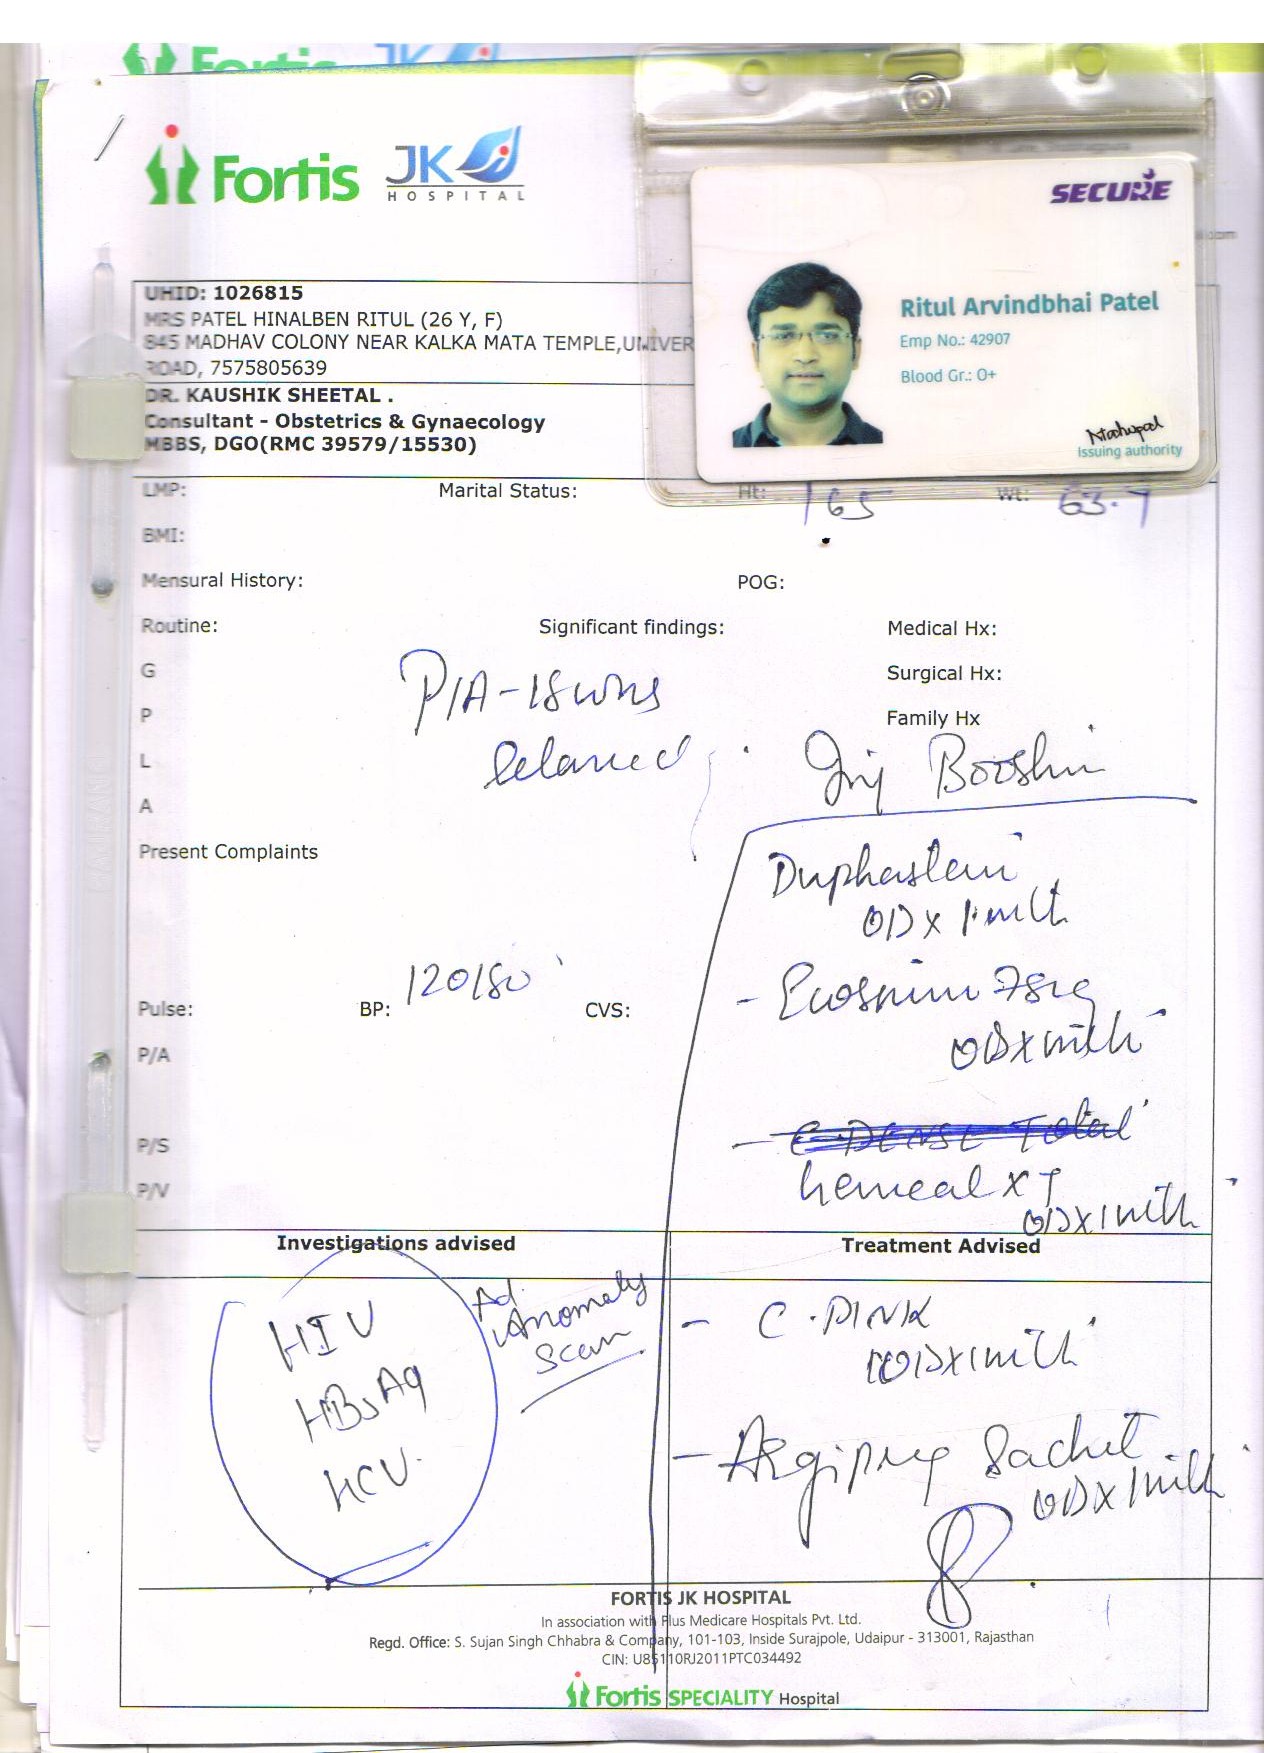 Fortis
Fortis JK
HOSPITAL
SECURE
Ritul Arvindbhai Patel
Emp No.: 42907
Blood Gr.: O+
Issuing authority
UHID: 1026815
MRS PATEL HINALBEN RITUL (26 Y, F)
845 MADHAV COLONY NEAR KALKA MATA TEMPLE,UNIVER
ROAD, 7575805639
DR. KAUSHIK SHEETAL .
Consultant - Obstetrics & Gynaecology
MBBS, DGO(RMC 39579/15530)
LMP: Marital Status: Ht: 165 Wt: 63.7
BMI:
Mensural History: POG:
Routine: Significant findings: Medical Hx:
G Surgical Hx:
P P/A - 18 wks Family Hx
L relaxed
A Inj
Present Complaints
Duphaston
OD x 1 mth
Pulse: BP: 120/80 CVS:
- Ecosprin 75mg
OD x mth
P/A
P/S - C-DENSE Total
P/V
OD x 1 mth
Investigations advised Treatment Advised
HIV
HBsAg
HCV
Ad
Anomaly
Scan
- C. PINK
OD x 1 mth
- Argipreg Sachet
OD x 1 mth
FORTIS JK HOSPITAL
In association with Plus Medicare Hospitals Pvt. Ltd.
Regd. Office: S. Sujan Singh Chhabra & Company, 101-103, Inside Surajpole, Udaipur - 313001, Rajasthan
CIN: U85110RJ2011PTC034492
Fortis SPECIALITY Hospital